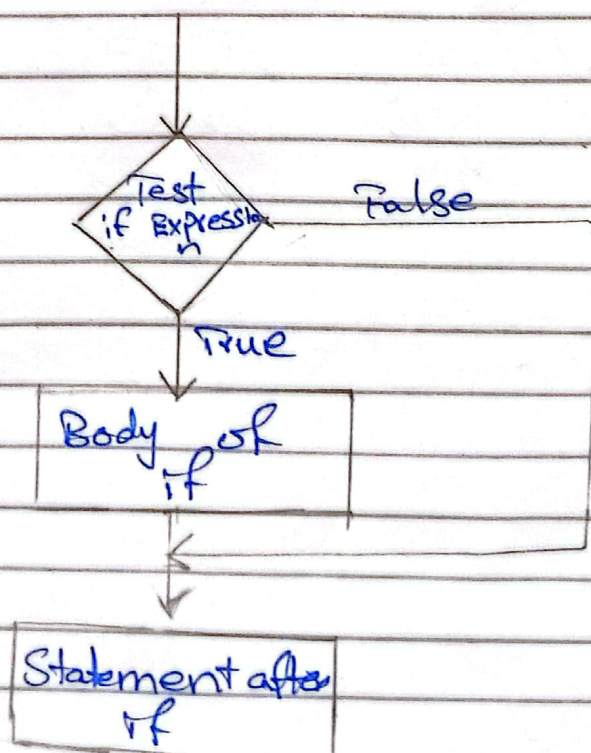 Test
if Expression
False
True
Body of
if
Statement after
if